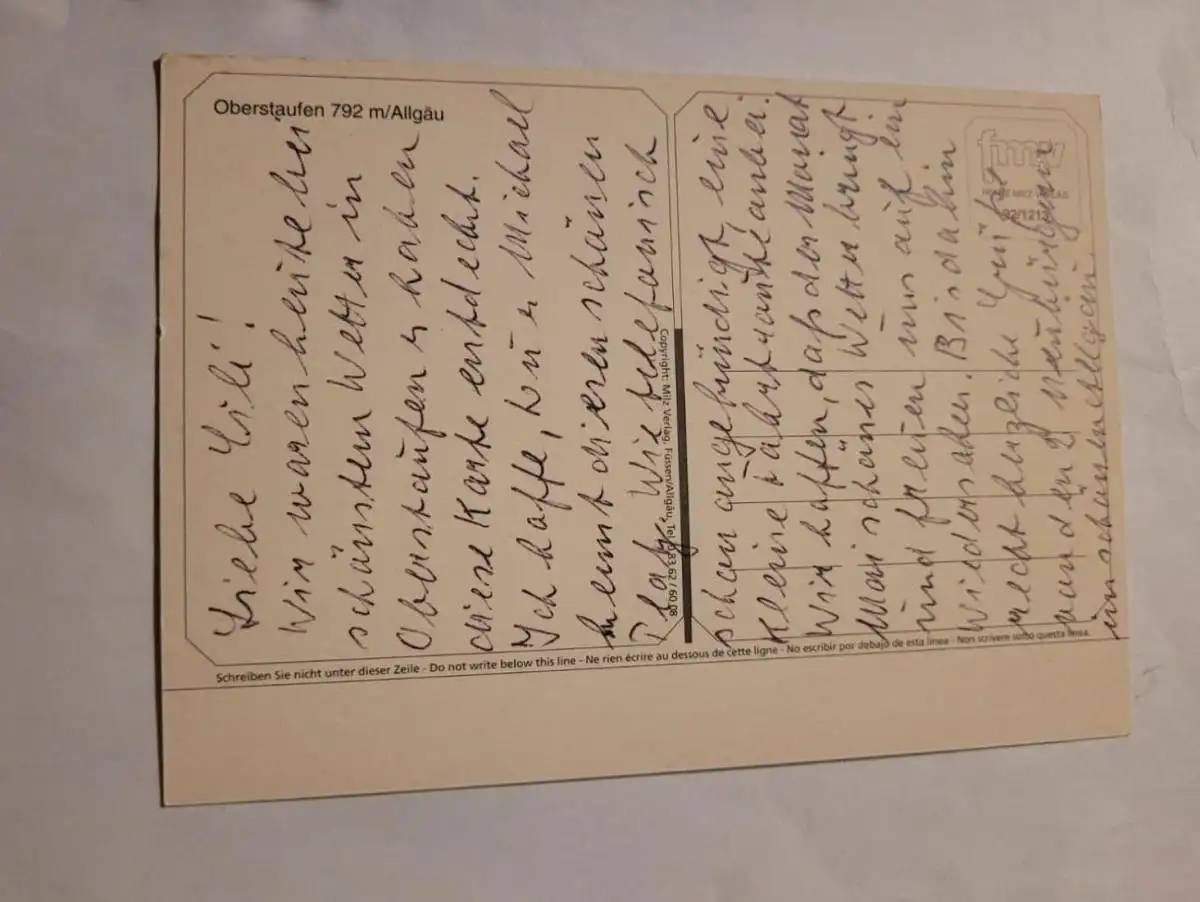 Oberstaufen 792 m/Allgäu
Liebe Lili!
Wir waren heute bei
schönstem Wetter in
Oberstaufen u haben
diese Karte entdeckt.
Ich hoffe, Du u Michael
kennt diesen schönen
Platz. Wie telefonisch
schon angekündigt, eine
kleine anbei.
Wir hoffen, daß der Monat
Mai schönes Wetter bringt
und freuen uns auf ein
Wiedersehen. Bis dahin
recht herzliche Grüße
von den 2
im schönen Allgäu.
Copyright: Milz Verlag, Füssen/Allgäu, Tel. 0 83 62 / 60 08
fmv
MILZ VERLAG
92/1212
Schreiben Sie nicht unter dieser Zeile - Do not write below this line - Ne rien écrire au dessous de cette ligne - No escribir por debajo de esta linea - Non scrivere sotto questa linea.